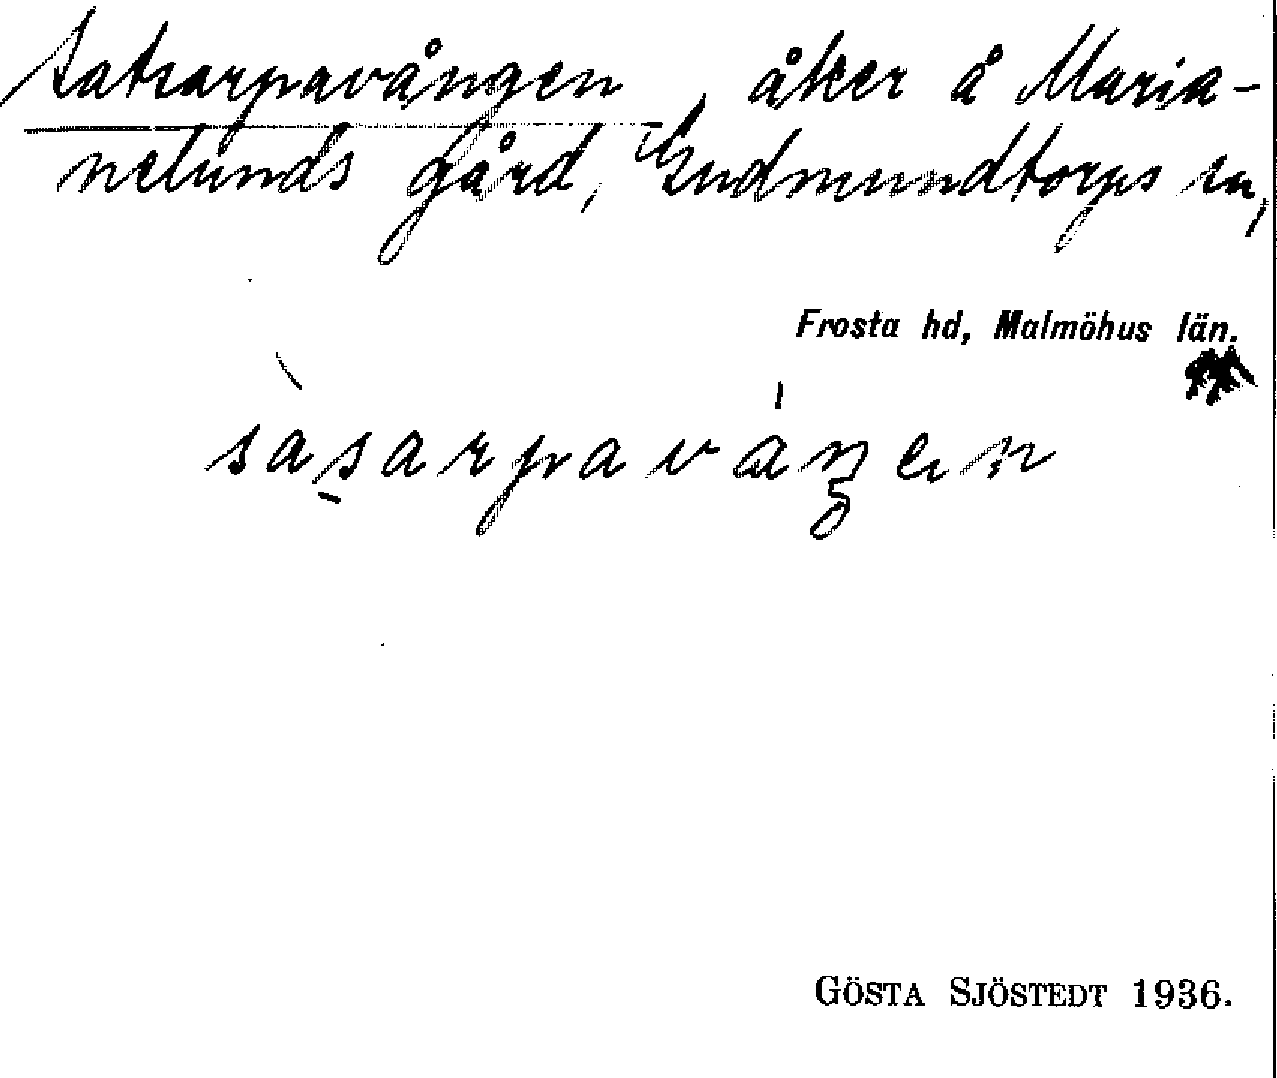 Satsarpavången, åker å Maria-
nelunds gård, Gudmundtorps sn,
Frosta hd, Malmöhus län.
sàsarpaváŋen
GÖSTA SJÖSTEDT 1936.